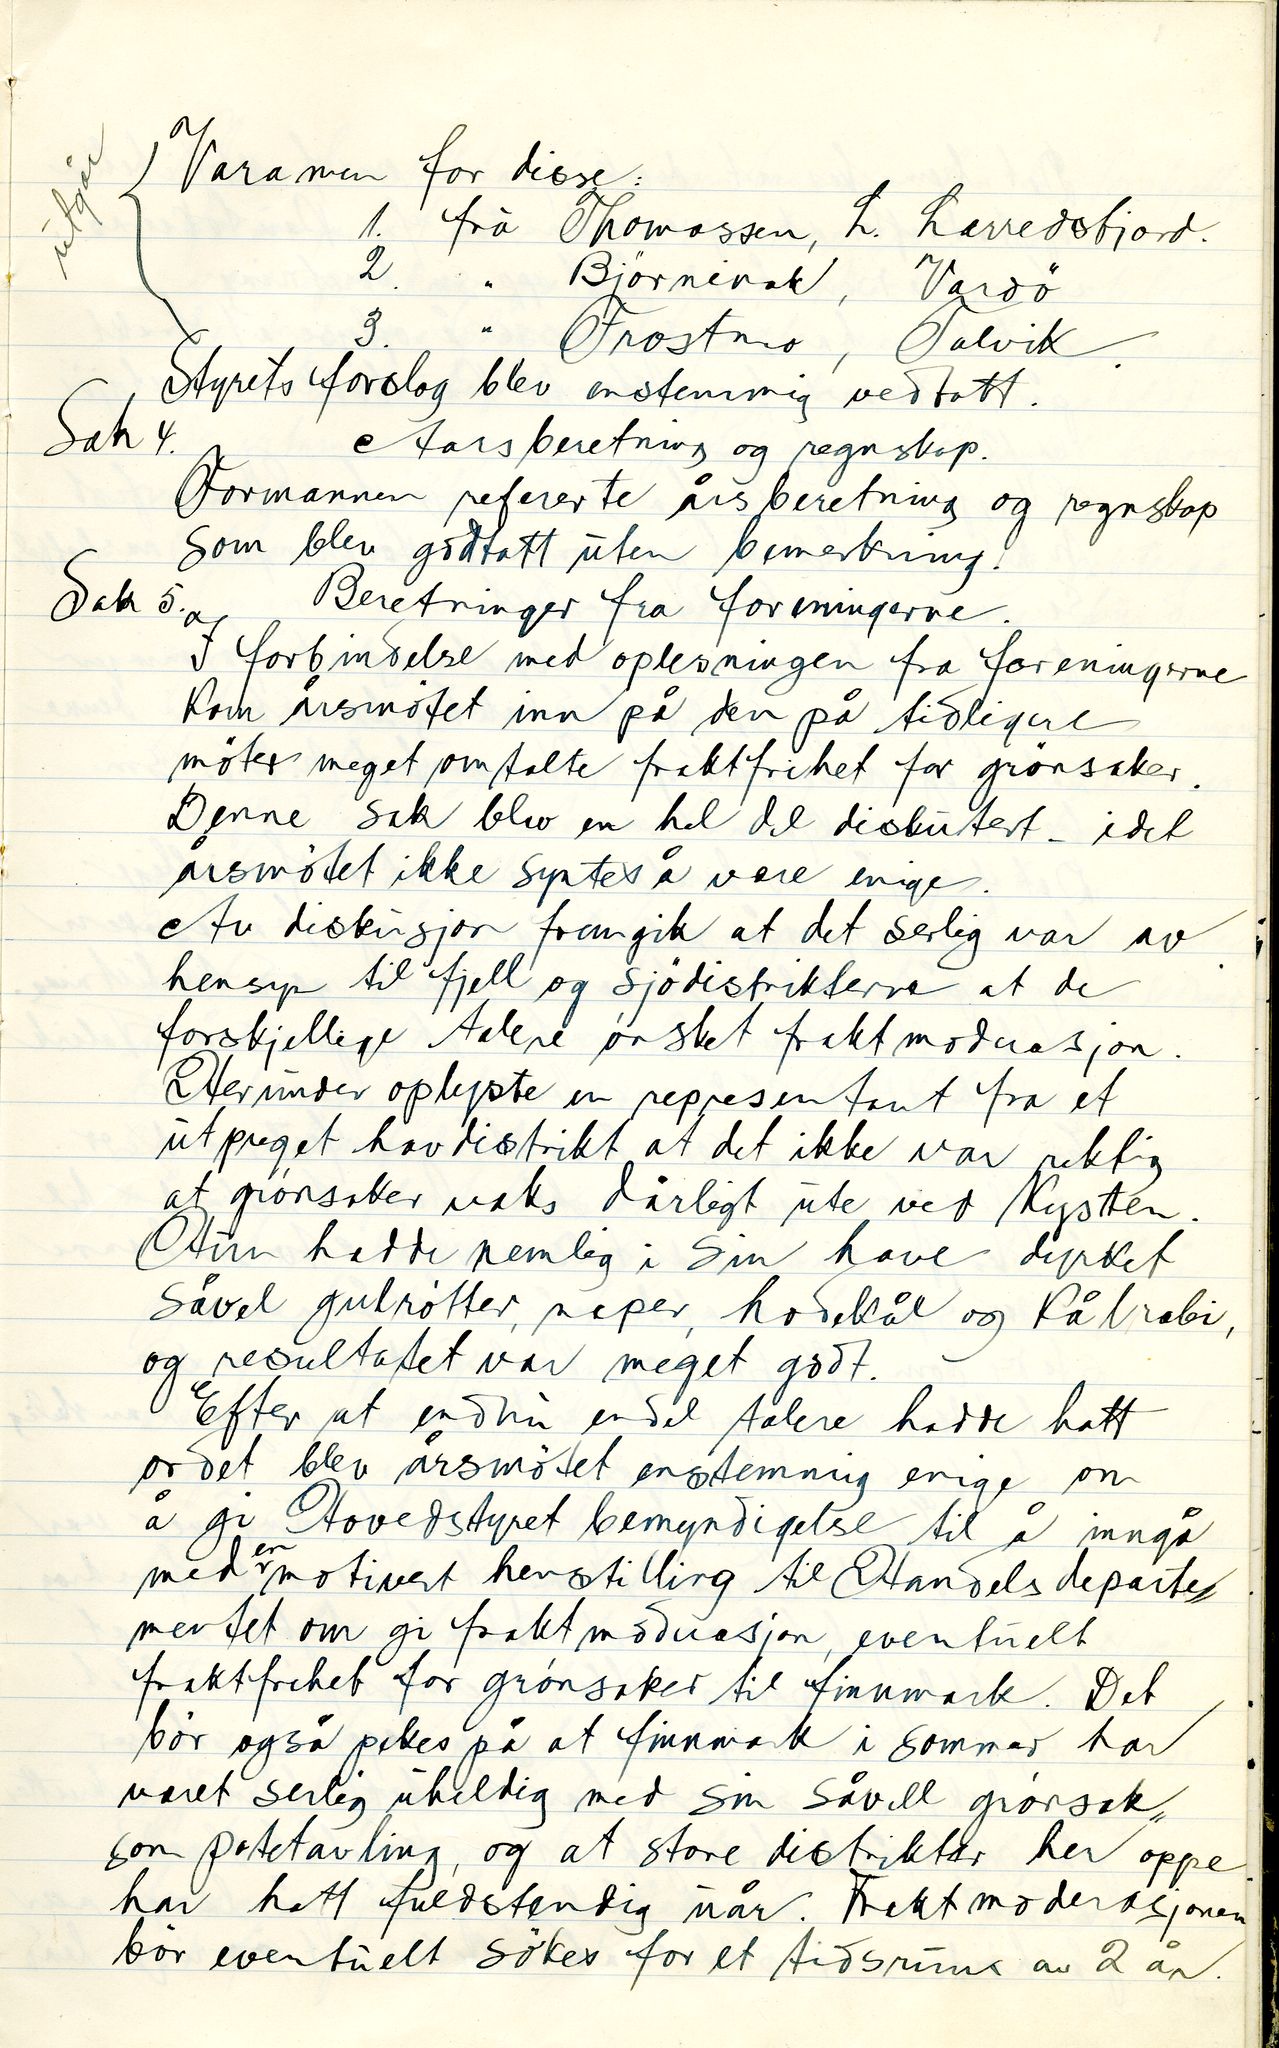 utgår
Varamen for disse:
1. frü Thomassen, L. Lerredsfjord.
2. " Björnevak, Vardö
3. " Frostmo, Talvik.
Styrets forslag blev enstemmig vedtatt.
Sak 4. Aarsberetning og regnskap.
Formannen refererte årsberetning og regnskap
som blev godtatt uten bemerkning.
Sak 5. a Beretninger fra foreningerne.
I forbindelse med oplesningen fra foreningerne
kom årsmötet inn på den på tidligere
möter meget omtalte fraktfrihet for grönsaker.
Denne sak blev en hel del diskutert - idet
årsmötet ikke syntes å være enige.
Av diskusjon fremgik at det serlig var av
hensyn til fjell og sjödistrikterne at de
forskjellige talere önsket fraktmoderasjon.
Herunder oplyste en representant fra et
utpreget havdistrikt at det ikke var riktig
at grönsaker vaks dårligt ute ved Kysten.
Hun hadde nemlig i sin have dyrket
såvel gulrötter, neper, hodekål og kålrabi,
og resultatet var meget godt.
Efter at endnu endel talere hadde hatt
ordet blev årsmötet enstemmig enige om
å gi Hovedstyret bemyndigelse til å inngå
med en motivert henstilling til Handelsdeparte„
mentet om gi fraktmoderasjon, eventuelt
fraktfrihet for grönsaker til finnmark. Det
bör også pekes på at finnmark i sommer har
været serlig uheldig med sin såvell grönsak„
som potetavling, og at store distrikter her oppe
har hatt fuldstendig uår. Fraktmoderasjonen
bör eventuelt sökes for et tidsrum av 2 år.